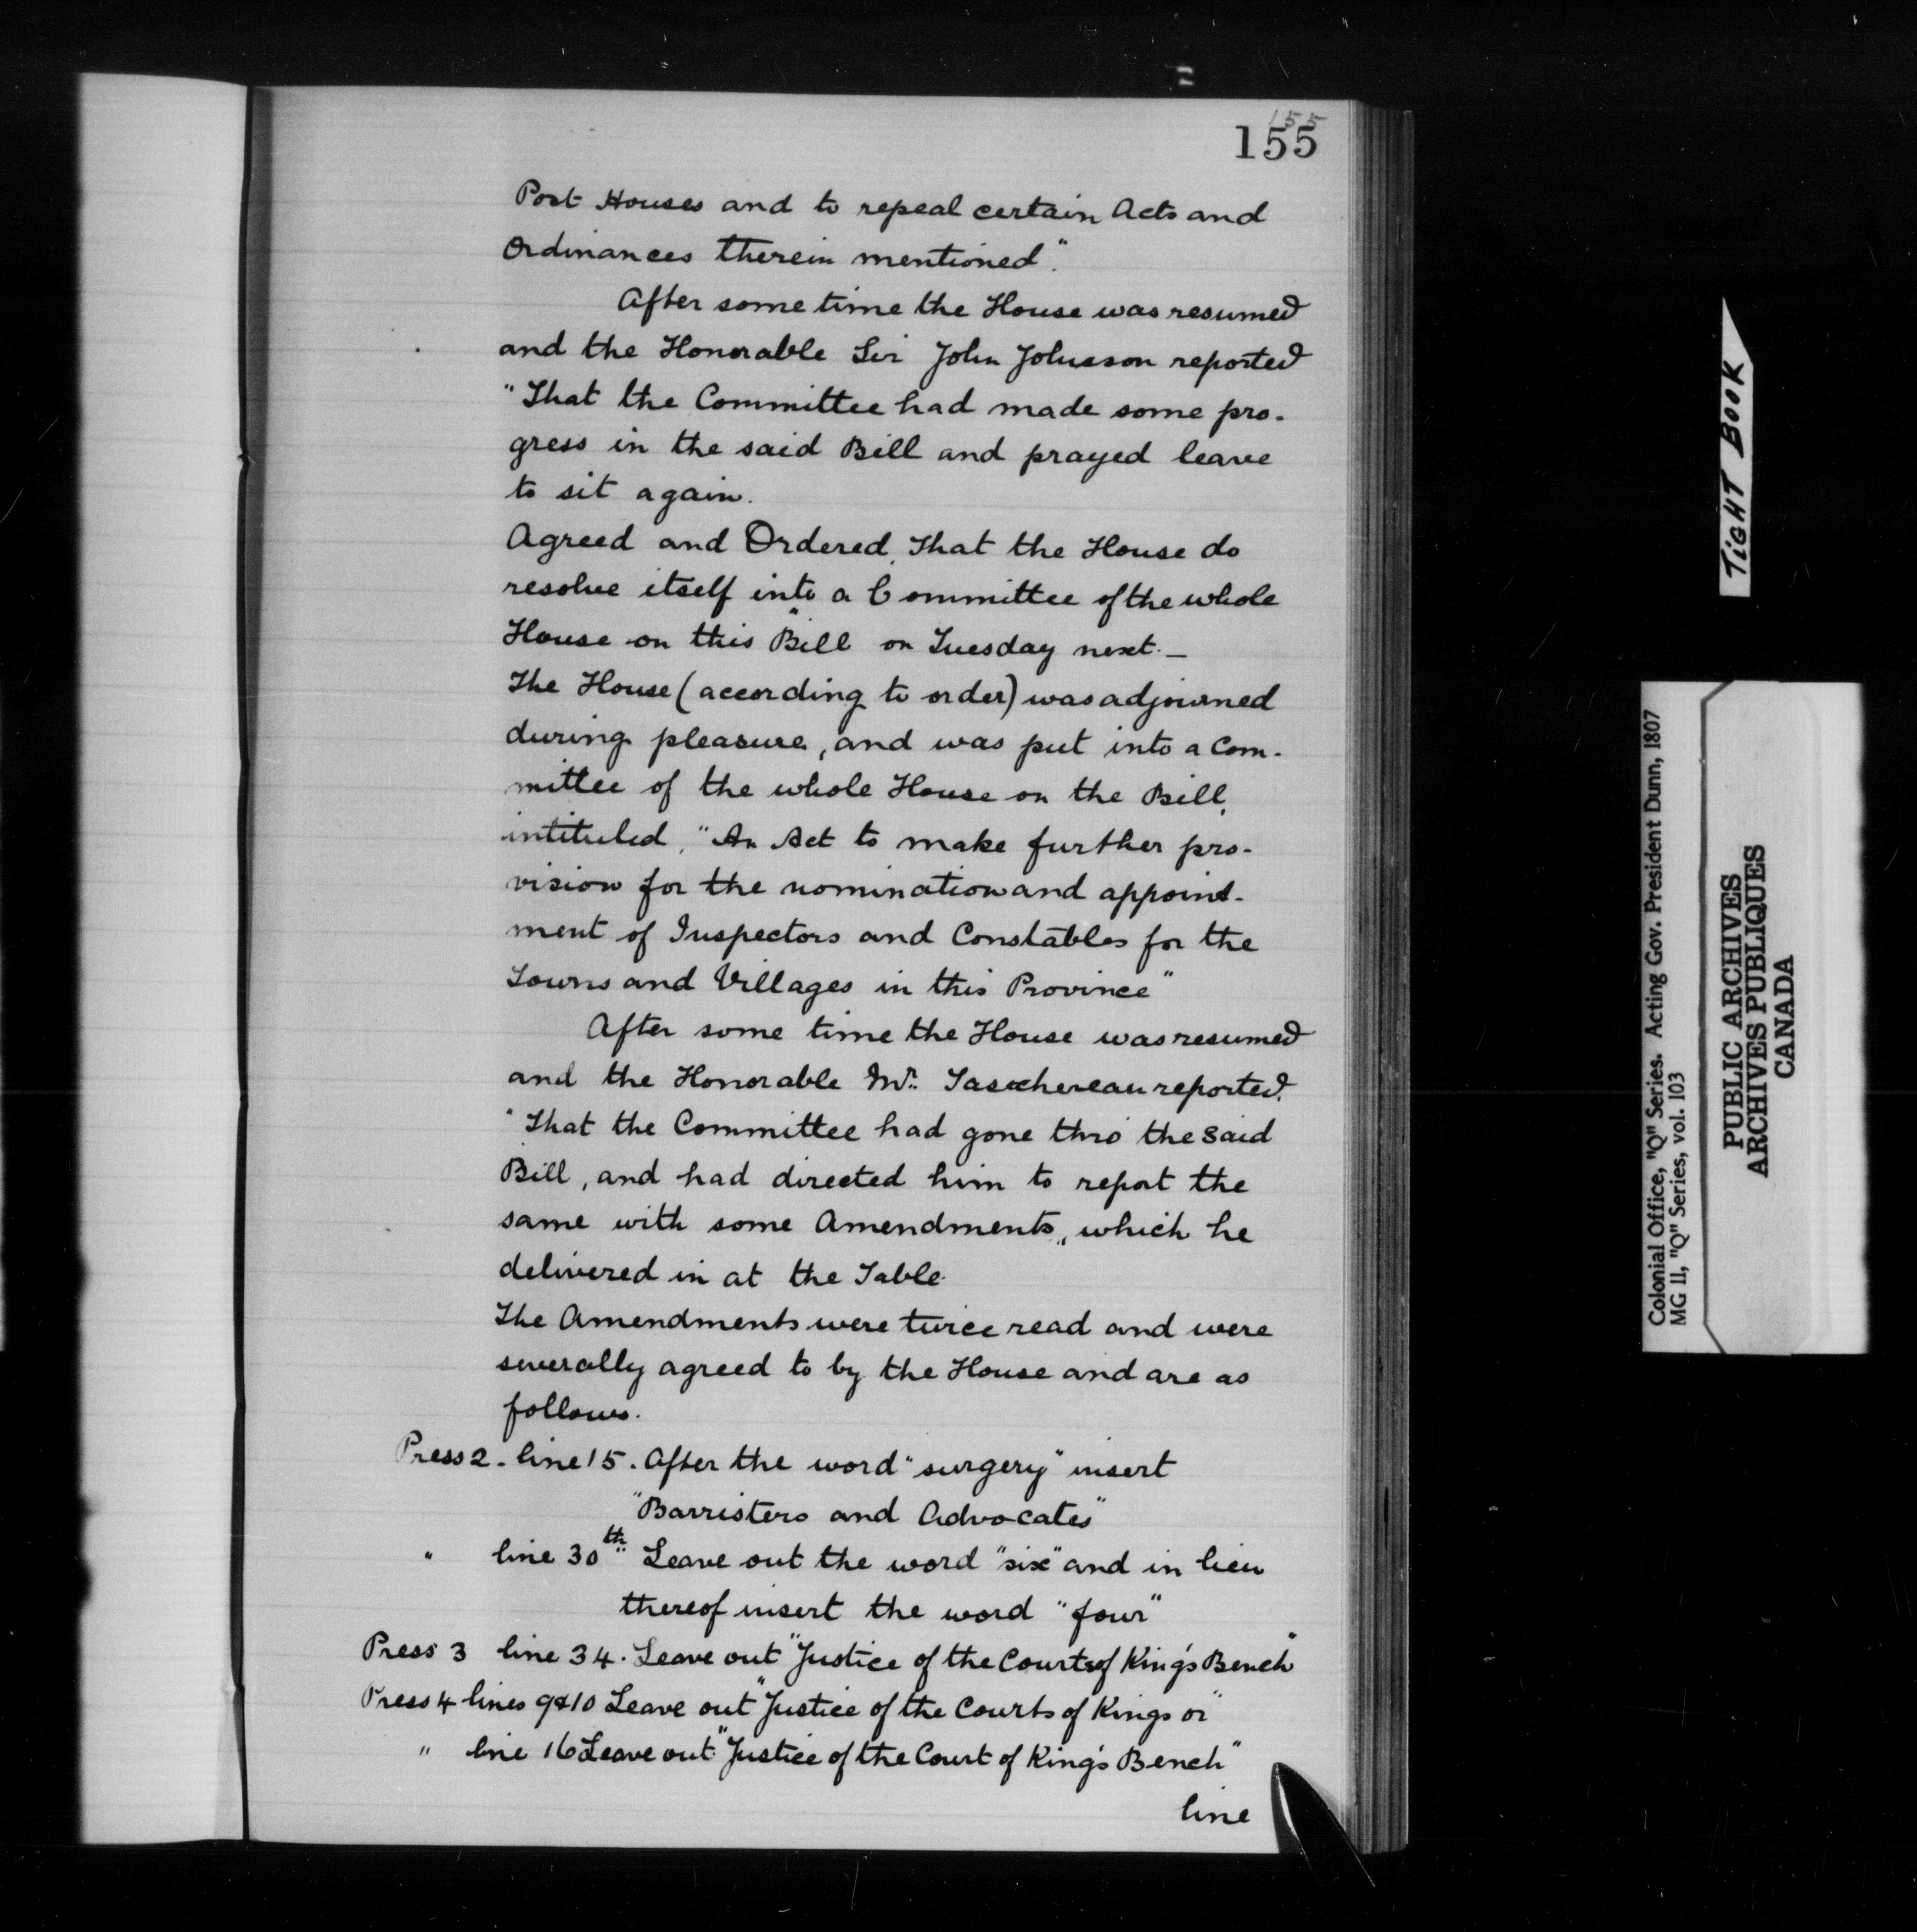 155
155
Post Houses and to repeal certain Acts and
Ordinances therein mentioned".
After some time the House was resumed
and the Honorable Sir John Johnson reported
"That the Committee had made some pro-
gress in the said Bill and prayed leave
to sit again.
Agreed and Ordered, That the House do
resolve itself into a Committee of the whole
House on this Bill on Tuesday next. —
The House (according to order) was adjourned
during pleasure, and was put into a Com-
mittee of the whole House on the Bill,
intituled, "An Act to make further pro-
vision for the nomination and appoint-
ment of Inspectors and Constables for the
Towns and Villages in this Province"
After some time the House was resumed
and the Honorable Mr. Taschereau reported.
"That the Committee had gone thro' the said
Bill, and had directed him to report the
same with some Amendments, which he
delivered in at the Table.
The Amendments were twice read and were
severally agreed to by the House and are as
follows.
Press 2. line 15. After the word "surgery" insert
"Barristers and Advocates"
" line 30th Leave out the word "six" and in lieu
thereof insert the word "four"
Press 3 line 34. Leave out "Justice of the Courts of King's Bench"
Press 4 lines 9&10 Leave out "Justice of the Courts of Kings or"
" line 16 Leave out "Justice of the Court of King's Bench"
line
TIGHT BOOK
Colonial Office, "Q" Series. Acting Gov. President Dunn, 1807
MG 11, "Q" Series, vol. 103
PUBLIC ARCHIVES
ARCHIVES PUBLIQUES
CANADA